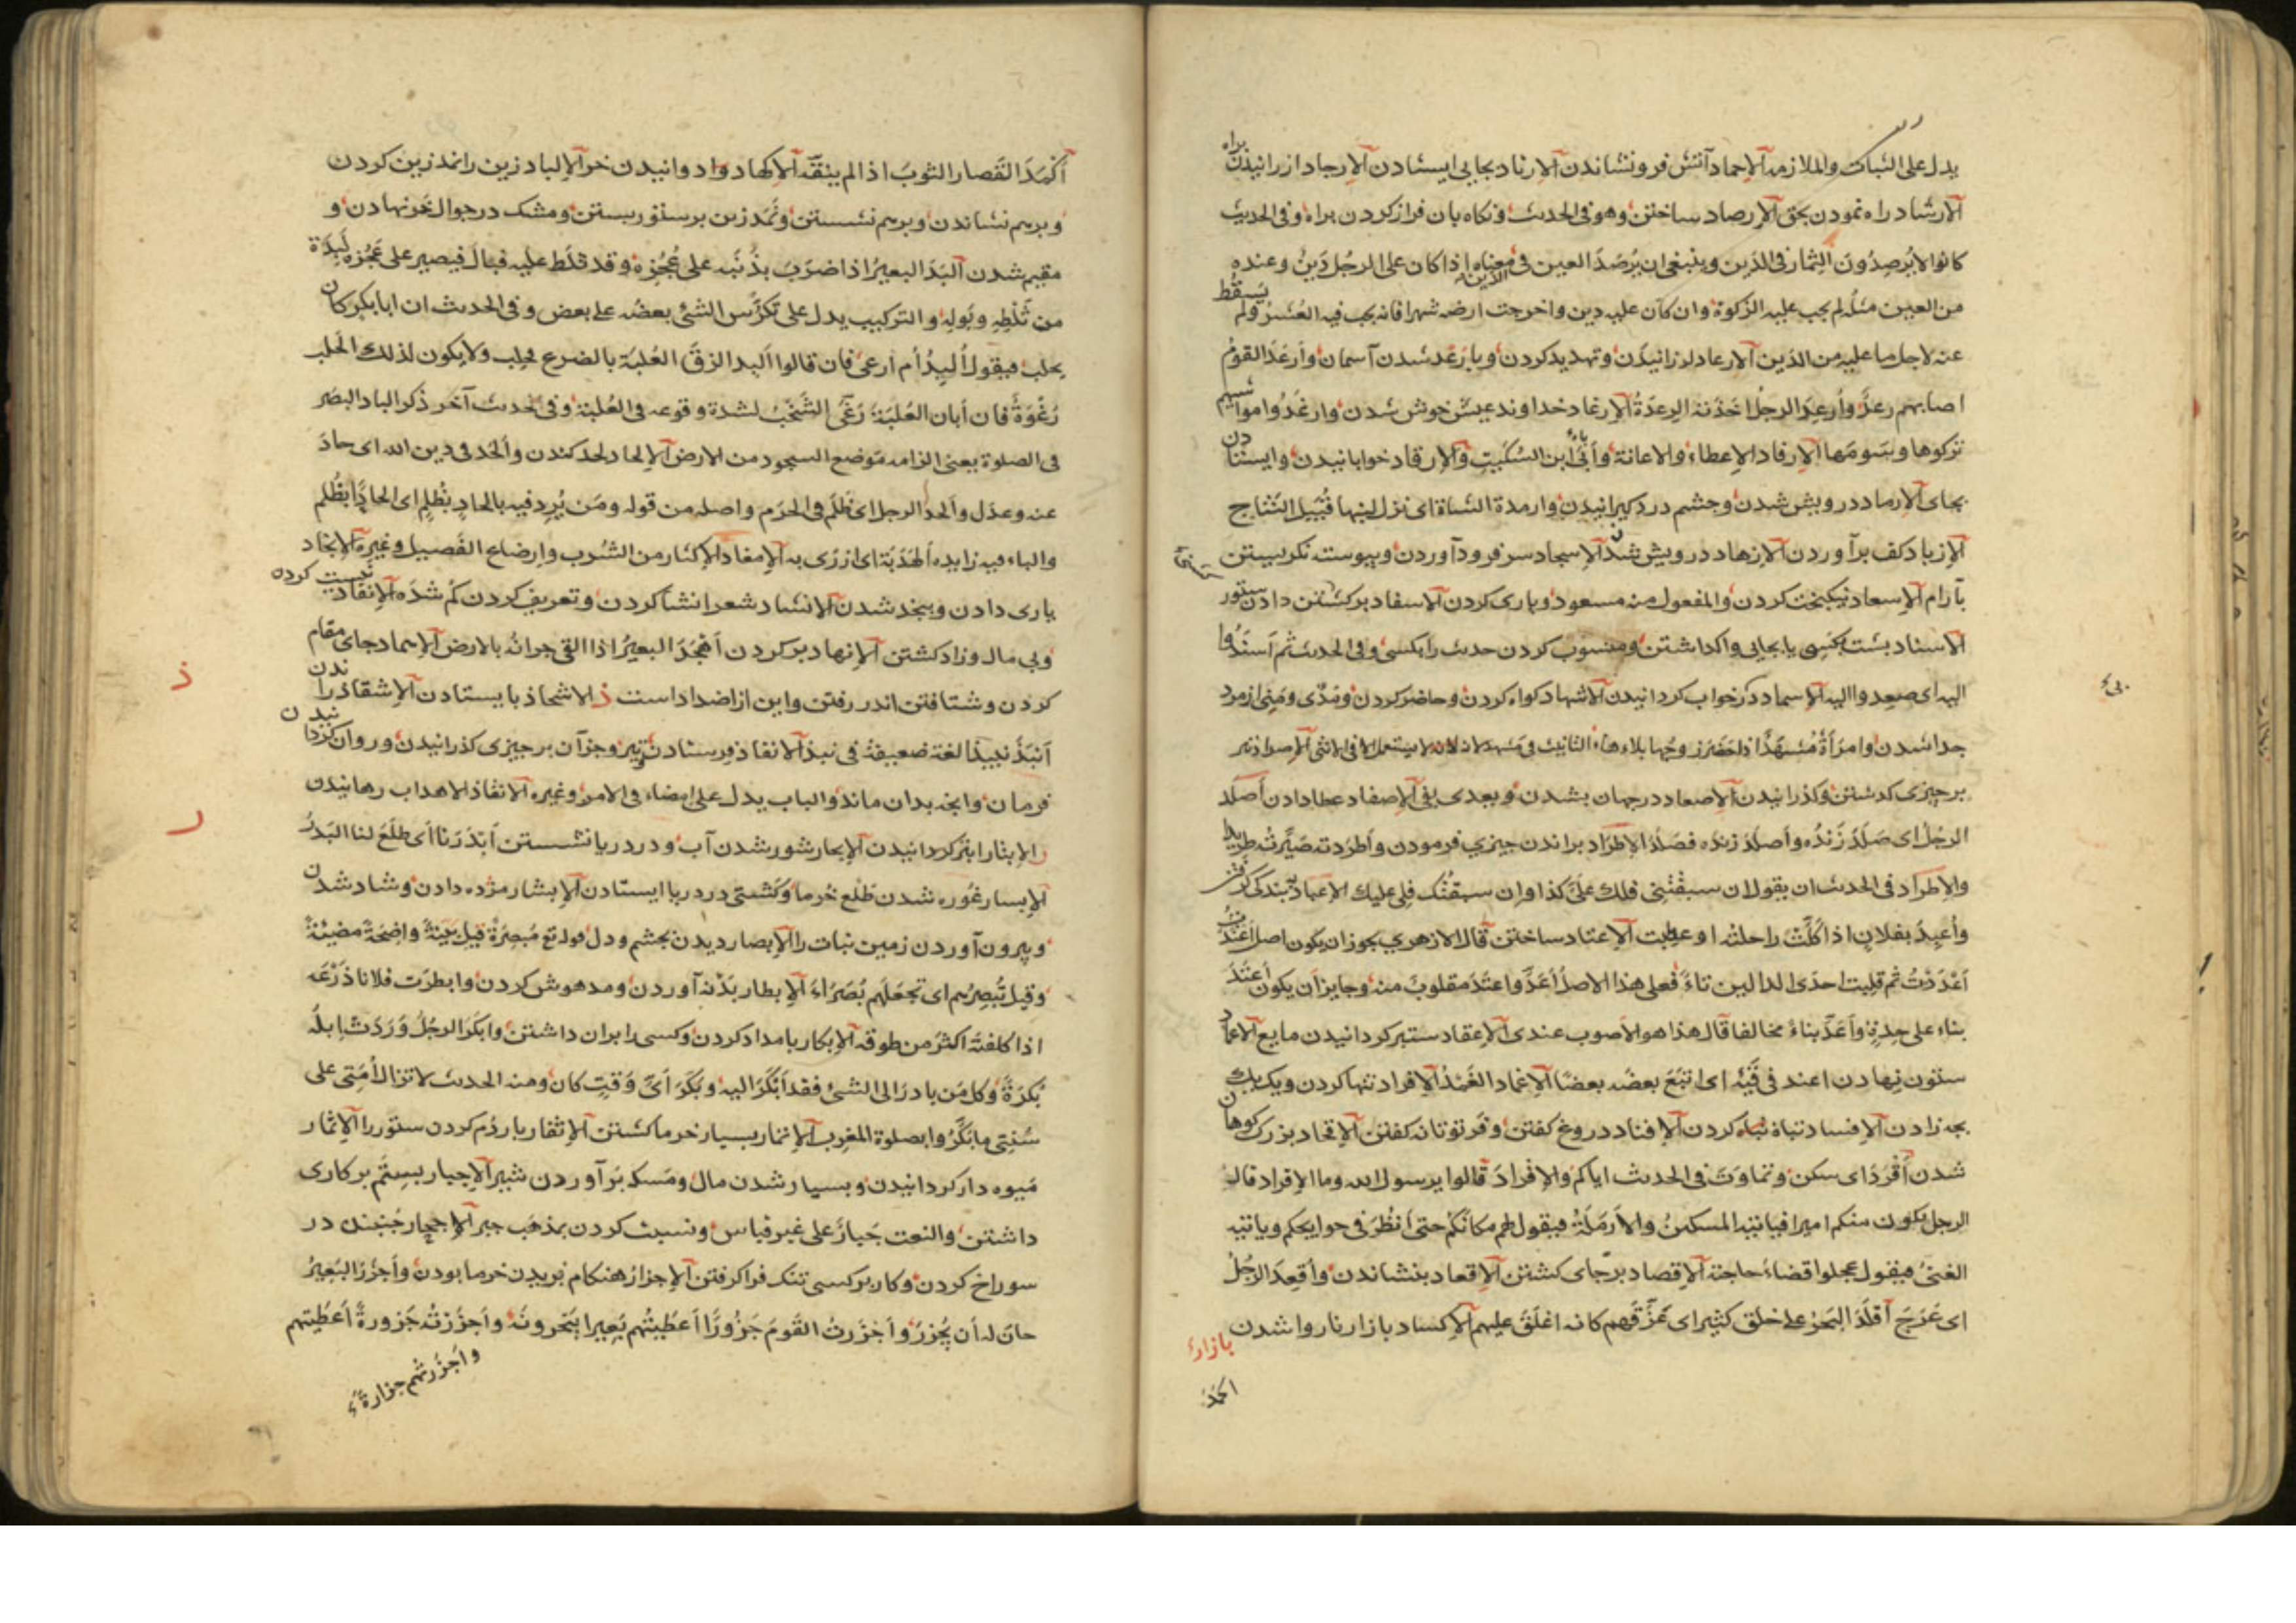 يدل على الثبات والملازمة الإحماد آتش فرونشاندن الإرثاد بجايى ايستادن الإرجاد ازرانيدن
براه
الارشاد راه نمودن بحق الإرصاد ساختن وهو فى الحديث ونكاه بان فراز كردن براه وفى الحديث
كانوا لا يُرصِدُونَ الثمار فى الدَين وينبغى ان يُرصَدَ العين فى الدَين معناه اذا كان على الرجُل دَينٌ وعنده
من العين مثلُه لم يجب عليه الزكوة وان كان عليه دين واخرجت ارضه شهرا فانه يجب فيه العُشرُ ولم يَسقُط
عنه لاجل ما عليه من الدَين الارعاد لرزانيدن وتهديد كردن وبا رَعْد شدن آسمان وأرعَدَ القومُ
اصابهم رعدٌ وأُرعِدَ الرجلُ اخَذَته الرِعدَةُ الإرغاد خداوند عيش خوش شدن وارغَدُوا مواشيهم
تركوها وسَومَها الإرفاد الإعطاء والاعانة وأبَى ابن السِّكِّيتِ والإرقاد خوابانيدن وايستادن
بجاى الإرماد درويش شدن وچشم درد كيرانيدن وارمدة الشاة اى نزل لبنها قُبَيل النَتاج
الإزباد كف برآوردن الازهاد درويش شدن الإسجاد سر فرود آوردن وپيوسته نكريستن
بآرام الإسعاد نيكبخت كردن والمفعول منه مسعود ويارى كردن الاسفاد بر كشتن دادن ستور
الاسناد پشت بكسى يا بجايى وا كداشتن ومنسوب كردن حديث را بكسى وفى الحديث ثم أَسنَدُوا
اليه اى صعِدوا اليه الإسماد در خواب كردانيدن الاشهاد كواه كردن وحاضر كردن ومَذى ومَنِى از مرد
جدا شدن وامرَأةٌ مُشهِدٌ اذا حَضَرَ زوجُها بلا هاء التانيث
بر چيزى كدشتن وكذرانيدن الإصعاد در جهان بشدن ويعدى بفى الإصفاد عطا دادن أَصلَدَ
الرجُلُ اى صَلَدَ زَندُه وأصلَدَ زنده فصَلَدَ الإطرَاد براندن چيزي فرمودن وأطرَدته صَيَّرتُه طريدا
والإطراد فى الحديث ان يقول ان سبقْتَنِى فلك عَلَىَّ كذا وإن سبقتُك فلى عليك الاعباد بندكى كرفتن
وأُعبِدَ بفلانٍ اذا كَلَّت راحلتُه او عطبت الإعتاد ساختن قال الازهري يجوز ان يكون اصل اَعتَدْتُ
اَعْدَدْتُ ثم قلبت احدَى الدالين تاءً فعلى هذا الاصلُ أعَدَّ واعتَدَ مقلوبٌ منه وجايز ان يكون أعتَدَ
بناء على حِدةٍ وأعَدَّ بناءً مخالفا قال هذا هو الاصوب عندى الإعقاد ستبر كردانيدن مايع الاعماد
ستون نهادن اعند فى قَيئِه اى اتبَعَ بعضُه بعضًا الإغماد الغَمْدُ الإفراد تنها كردن ويك يك
بچه زادن الإفساد تباه كردن الإفناد دروغ كفتن وفرتوتانه كفتن الإقحاد بزرك كوهان
شدن أَقْرَدَ اى سكن وتماوَتَ فى الحديث اياكم والإقرادَ قالوا يا رسول الله وما الإقراد قال
الرجل يكون منكم اميرا فياتيه المسكينُ والأرملَةُ فيقول لهم مكانكم حتى أنظُرَ فى حوايجكم وياتيه
الغنىُ فيقول عجلوا قضاءَ حاجته الإقصاد بر جاى كشتن الإقعاد بنشاندن وأُقعِدَ الرجُلُ
اى عَرَجَ أقلَدَ البَحرُ على خلق كثير اى غرَّقَهم كانه اغلَقَ عليهم الإكساد بازار ناروا شدن
بازار
اكمَدَ
أَكْمَدَ القَصار الثوبَ اذا لم ينقّه الإكهاد دوا دوانيدن خر الإلباد زين را نمد زين كردن
وبرهم نشاندن وبرهم نشستن ونَمَد زين بر ستور بستن ومشك در جوال نهادن و
مقيم شدن ألبَدَ البعيرُ اذا ضرَبَ بذَنَبه على عَجُزِه وقد ثلَط عليه فبال فيصير على عَجُزِه لِبدَة
من ثَلْطِه وبَولِه والتركيب يدل على تكرُّس الشئ بعضُه على بعض وفى الحديث ان ابا بكر كان
يحلب فيقول أُلبِدُ أم ارغى فان قالوا ألبد الزقَ العُلبَة بالضرع فحلب ولا يكون لذلك الحَلب
رَغْوَةٌ فان أبان العُلبَةَ رَغَى الشَخْبُ لشدة وقوعه فى العُلبَة وفى حديث آخر ذكر الباد البصَر
فى الصلوة يعنى الزامه مَوضع السجود من الارض الإلحاد لحد كندن وألحَدَ فى دين الله اى حادَ
عنه وعدَل وألحَدَ الرجل اى ظَلَمَ فى الحَرَم واصله من قوله ومَن يُرِد فيه بالحادٍ بظُلمٍ اى الحادًا بظُلم
والباء فيه زايده ألهَدَ به اى ازرَى به الإمغاد الإكثار من الشرب وارضاع الفَصيل وغيره الإنجاد
يارى دادن وبنجد شدن الانشاد شعر انشا كردن وتعريف كردن كم شده الإنفاد نيست كرده
وبى مال وزاد كشتن الإنهاد پر كردن أَهْجَدَ البعيرُ اذا القى جرانُه بالارض الإهماد جاى مقام
كردن وشتافتن اندر رفتن واين از اضداد است ذ الاشحاذ بايستادن الإشقاذ راندن
ذ
أنبَذَ نبيذا لغة ضعيفة فى نبذ الانفاذ فرستادن تير وجز آن بر چيزى كذرانيدن وروان كردانيدن
فرمان وآنچه بدان ماند والباب يدل على امضاء فى الامر وغيره الانقاذ الاهداب رهانيدن
ر
ر الإبثار ابتر كردانيدن الإبحار شور شدن آب ودر دريا نشستن أبدَرَنا اى طلَعَ لنا البَدرُ
الإبسار غُوره شدن طَلع خُرما وكشتى در دريا ايستادن الإبشار مژده دادن وشاد شدن
وبيرون آوردن زمين نبات را الإبصار ديدن بچشم ودل قوله تع مُبصِرَةً قيل بَيّنةً واضِحَةً مضيئةً
وقيل تُبصِرُهم اى تجعَلهم بُصَرَاءَ الإبطار بدنه آوردن ومدهوش كردن وابطَرَت فلانا ذَرْعَه
اذا كلفتَه اكثرَ من طوقه الإبكار بامداد كردن وكسى را بران داشتن وابكَرَ الرجُلُ وَرَدَت اِبلُه
بُكرَةً وكل مَن بادرَ الى الشئ فقد أَبْكَرَ اليه وبَكَرَ أىَّ وَقتٍ كان ومنه الحديث لا تزال أُمَتى على
سُنتِى ما بَكَّرُوا بصلوة المغرِب الإتمار بسيار خرما كشتن الإثفار پاردُم كردن ستور را الإثمار
مَيوه دار كردانيدن وبسيار شدن مال ومَسكه بَر آوردن شير الإجبار بستم بر كارى
داشتن والنعت جَبارٌ على غير قياس ونسبت كردن بمذهب جبر الإجحار جُنبنده در
سوراخ كردن وكار بر كسى تنك فرا كرفتن الإجزار هنكام بريدن خرما بودن وأجزَرَ البَعِيرُ
حانَ له أن يُجزرُ وأجزَرتُ القَومَ جَزُورًا أعطَيتُهم بَعِيرا يَنحَرونَه وأجزَرْتُه جَزورةً أعطَيتهم
وأجزَرتهم جزارةً